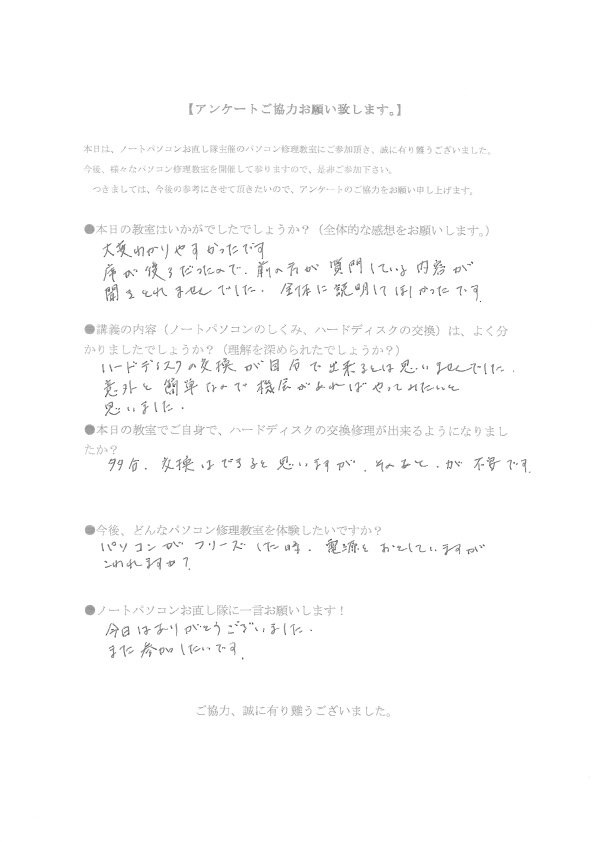 【アンケートご協力お願い致します。】
本日は、ノートパソコンお直し隊主催のパソコン修理教室にご参加頂き、誠に有り難うございました。
今後、様々なパソコン修理教室を開催して参りますので、是非ご参加下さい。
つきましては、今後の参考にさせて頂きたいので、アンケートのご協力をお願い申し上げます。
●本日の教室はいかがでしたでしょうか？（全体的な感想をお願いします。）
大変わかりやすかったです
席が後ろだったので、前の方が質問している内容が
聞きとれませんでした。全体に説明してほしかったです。
●講義の内容（ノートパソコンのしくみ、ハードディスクの交換）は、よく分
かりましたでしょうか？（理解を深められたでしょうか？）
ハードディスクの交換が自分で出来るとは思いませんでした。
意外と簡単なので機会があればやってみたいと
思いました。
●本日の教室でご自身で、ハードディスクの交換修理が出来るようになりまし
たか？
多分、交換はできると思いますが、そのあと、が不安です。
●今後、どんなパソコン修理教室を体験したいですか？
パソコンがフリーズした時、電源をおとしていますが
こわれますか？
●ノートパソコンお直し隊に一言お願いします！
今日はありがとうございました。
また参加したいです。
ご協力、誠に有り難うございました。